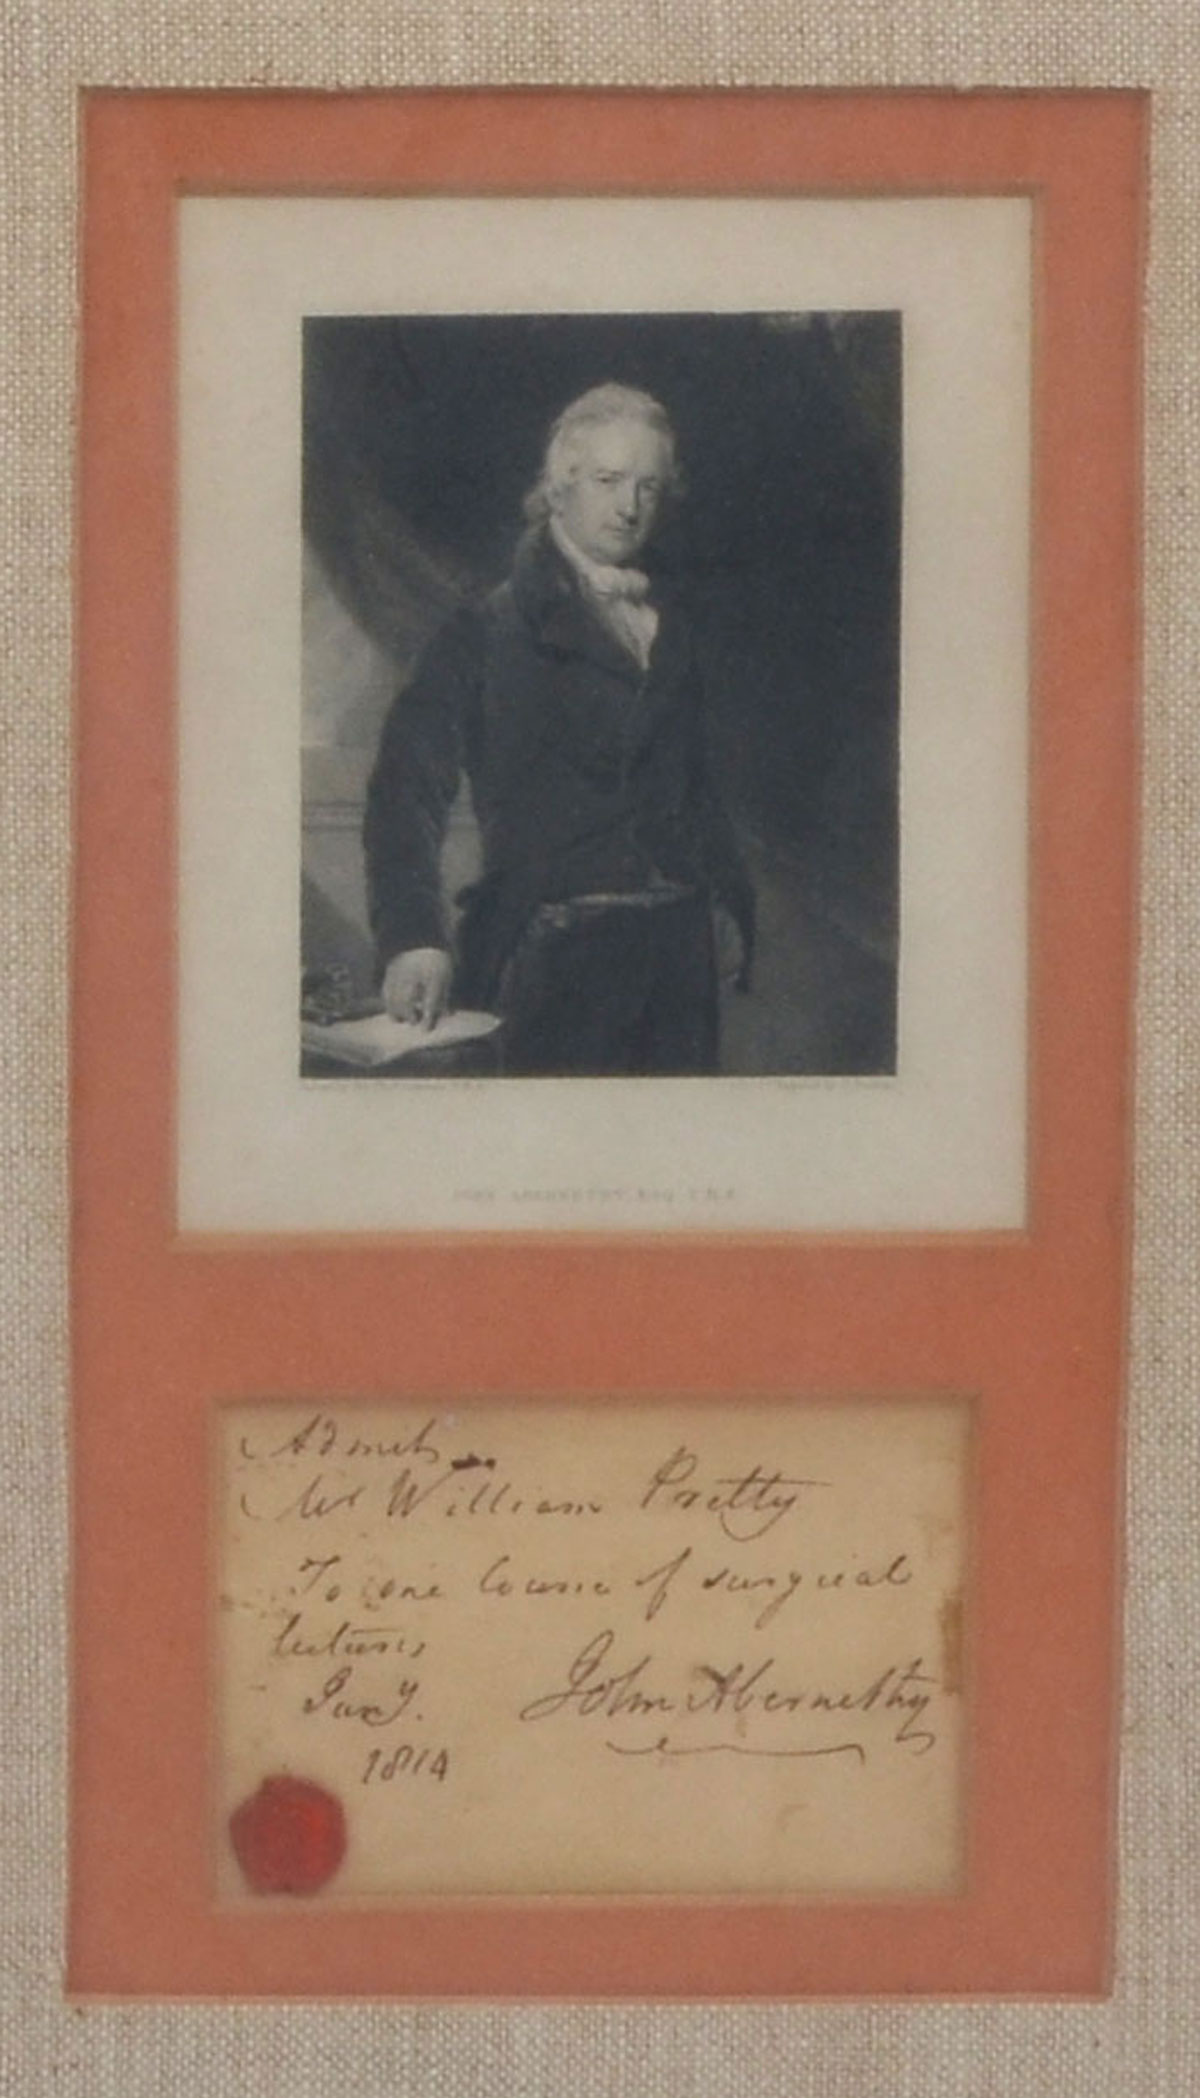 JOHN ABERNETHY, ESQ. F.R.S.
Admit
Mr William Pretty
To one Course of surgical
lectures
Jany.
1814
John Abernethy